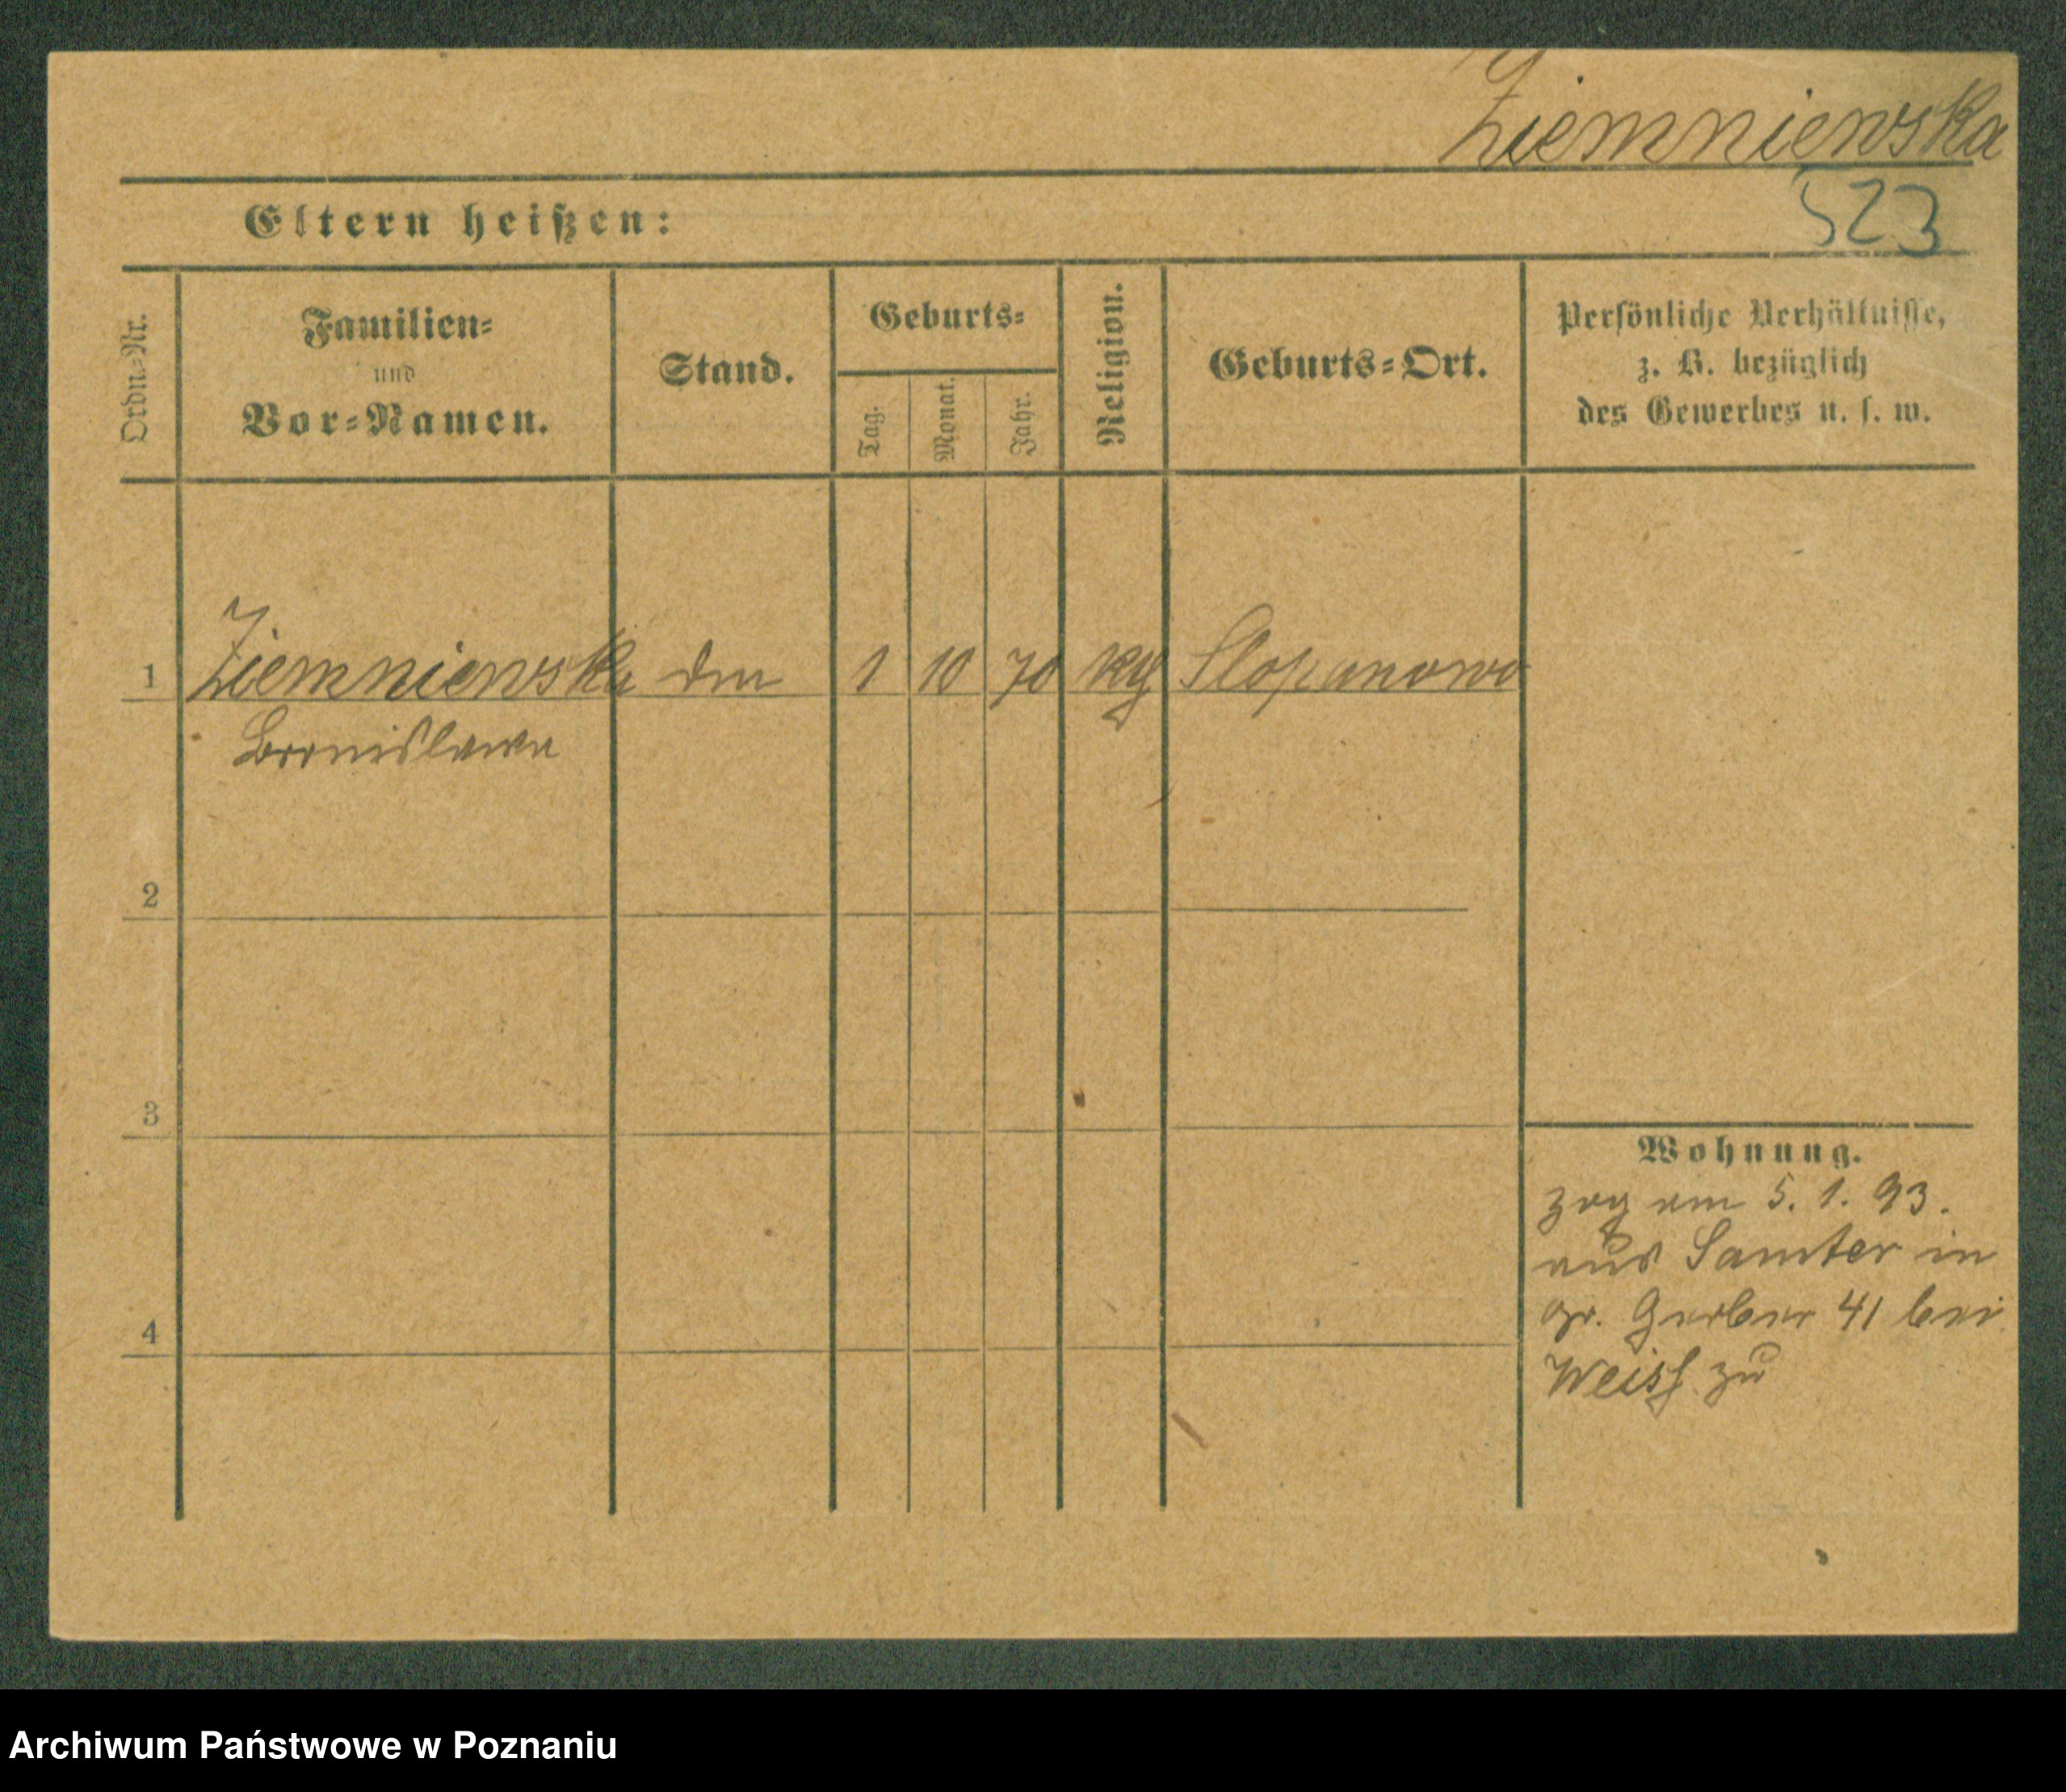 Ziemniewska
523
Eltern heißen:
Ordn.=Nr.
Familien=
und
Vor=Namen.
Stand.
Geburts=
Tag.
Monat.
Jahr.
Religion.
Geburts=Ort.
Persönliche Verhältnisse,
z. B. bezüglich
des Gewerbes u. s. w.
1 Ziemniewska 1 10 70 Slopanowo
Bronislawa
2
3
4
Wohnung.
zog am 5. 1. 93.
aus Samter in
gr. Gerber 41 bei
Weiss zu
Archiwum Państwowe w Poznaniu